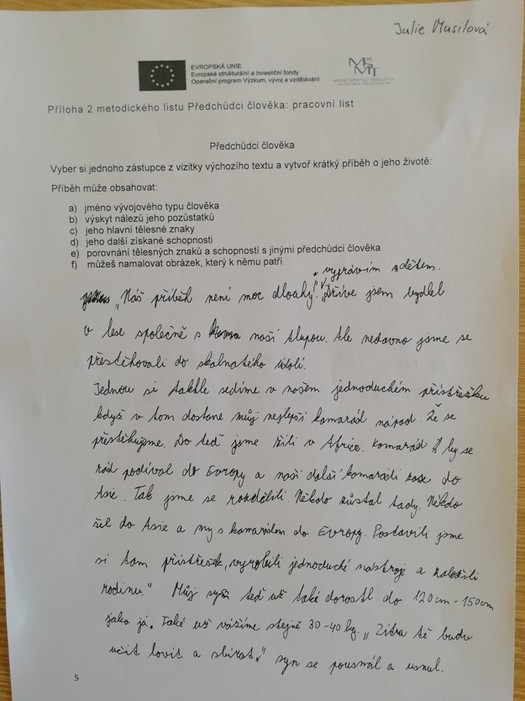 Julie Musilová
EVROPSKÁ UNIE
Evropské strukturální a investiční fondy
Operační program Výzkum, vývoj a vzdělávání
MŠMT
Příloha 2 metodického listu Předchůdci člověka: pracovní list
Předchůdci člověka
Vyber si jednoho zástupce z vizitky výchozího textu a vytvoř krátký příběh o jeho životě:
Příběh může obsahovat:
a) jméno vývojového typu člověka
b) výskyt nálezů jeho pozůstatků
c) jeho hlavní tělesné znaky
d) jeho další získané schopnosti
e) porovnání tělesných znaků a schopností s jinými předchůdci člověka
f) můžeš namalovat obrázek, který k němu patří
vyprávím dětem.
„Náš příběh není moc dlouhý". „Dříve jsem bydlel
v lese společně s naší tlupou. Ale nedávno jsme se
přestěhovali do skalnatého údolí.
Jednou si takhle sedíme v našem jednoduchém přístřešku
když v tom dostane můj nejlepší kamarád nápad. Že se
přestěhujeme. Do teď jsme žili v Africe. Kamarád by se
rád podíval do Evropy a naši další kamarádi zase do
Asie. Tak jsme se rozdělili. Někdo zůstal tady. Někdo
šel do Asie a my s kamarádem do Evropy. Postavili jsme
si tam přístřešek, vyrobili jednoduché nástroje a založili
rodinu." Můj syn teď už také dorostl do 120cm - 150cm
jako já. Také už vážíme stejně 30-40 kg. „Zítra tě budu
učit lovit a sbírat." syn se pousmál a usnul.
5